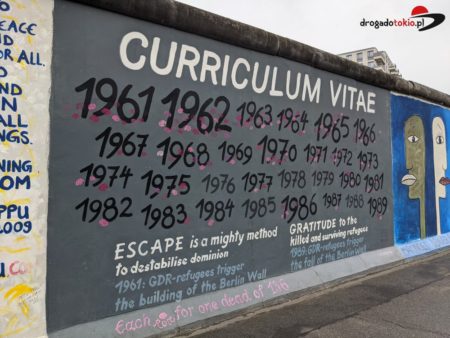 drogadotokio.pl
PEACE
FOR ALL.
CURRICULUM VITAE
1961 1962 1963 1964 1965 1966
1967 1968 1969 1970 1971 1972 1973
1974 1975 1976 1977 1978 1979 1980 1981
1982 1983 1984 1985 1986 1987 1988 1989
ESCAPE is a mighty method
to destabilise dominion
1961: GDR-refugees trigger
the building of the Berlin Wall
GRATITUDE to the
killed and surviving refugees
1989: GDR-refugees trigger
the fall of the Berlin Wall
Each for one dead of 136
AND
IN
ALL
NGS.
NING
OM
PPU
2009